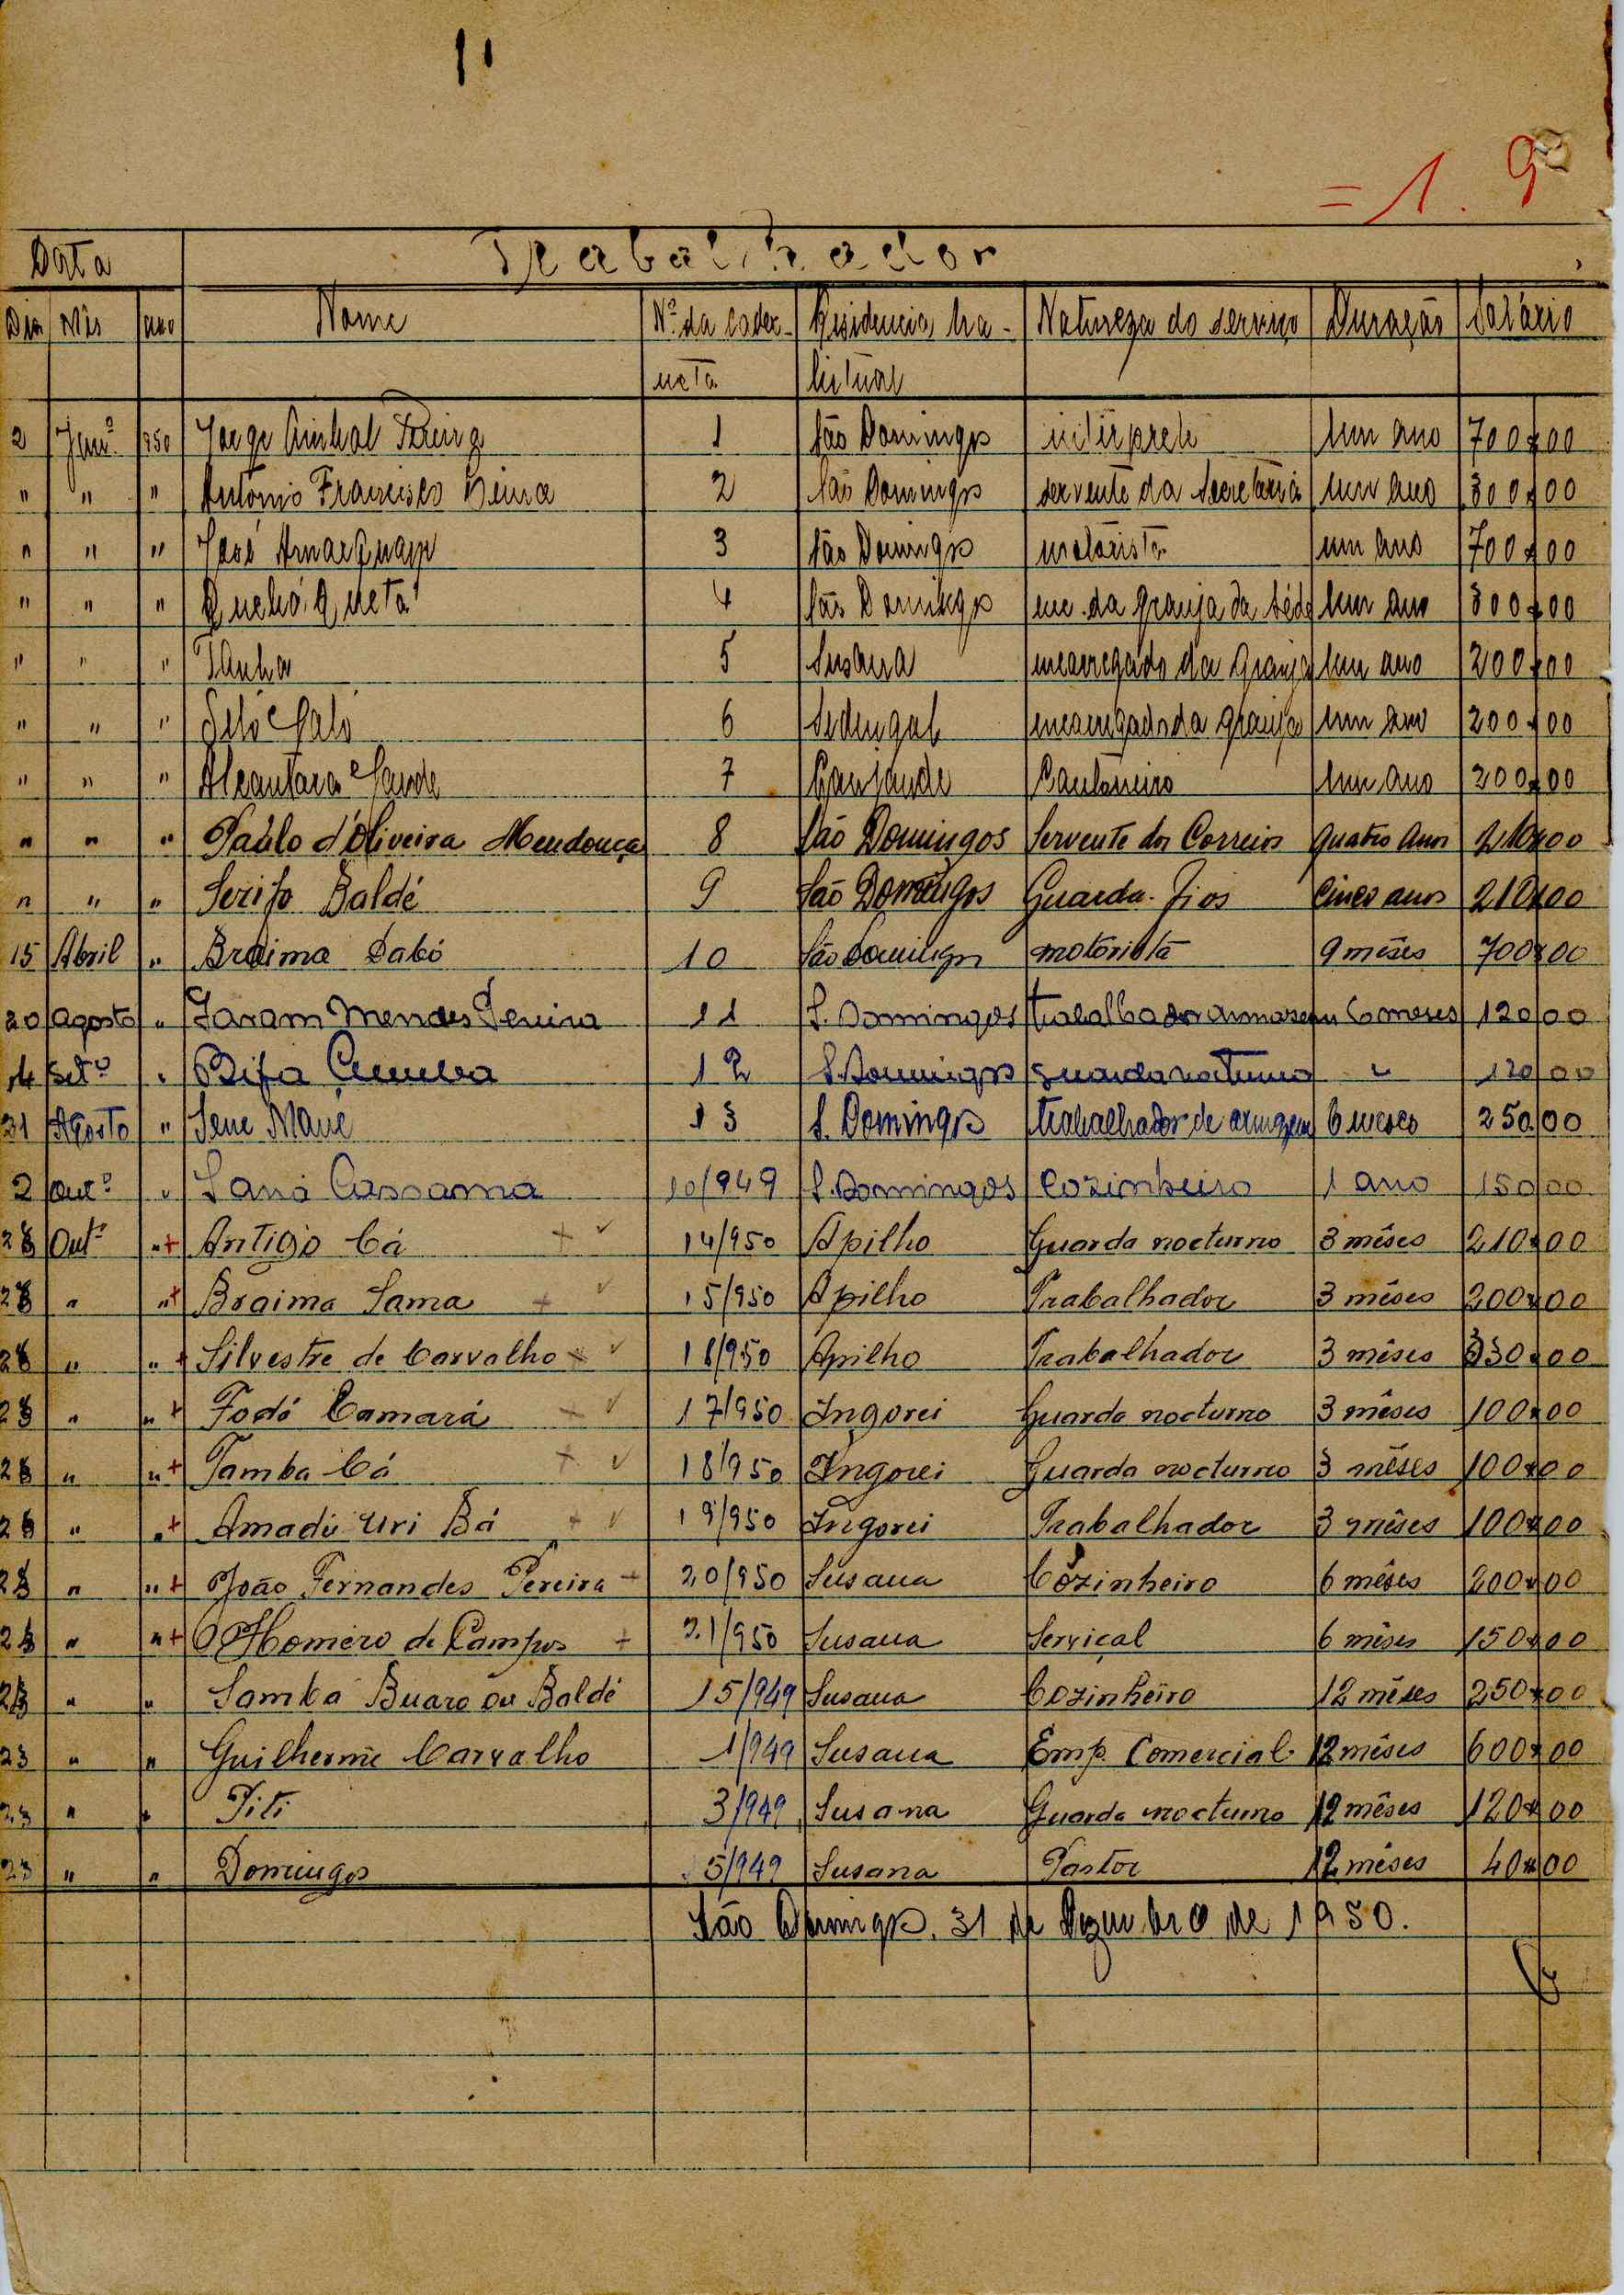 = 1. 9
Data Trabalhador
Dia Mês ano Nome Nº da cader- Residencia ha- Natureza do serviço Duração Salário
neta bitual
2 Janº 950 Jorge 1 São Domingos intérprete um ano 700$00
" " " António Francisco 2 São Domingos servente da Secretaria um ano 300$00
" " " José 3 São Domingos motorista um ano 700$00
" " " 4 São Domingos enc. da granja da séde um ano 300$00
" " " Tanha 5 Susana encarregado da granja um ano 200$00
" " " 6 Sedengal encarregado da granja um ano 200$00
" " " Alcantara Sande 7 Canjande Cantoneiro um ano 200$00
" " " Paulo d'Oliveira Mendonça 8 São Domingos Servente dos Correios quatro anos 210$00
" " " Serifo Baldé 9 São Domingos Guarda-fios cinco anos 210$00
15 Abril " Braima Dabó 10 São Domingos motorista 9 mêses 700$00
20 Agosto " Jaram Mendes Pereira 11 S. Domingos trabalhador armazem 6 meses 120 00
14 Setº " Bifa 12 S. Domingos guarda nocturno " 120 00
31 Agosto " Sene Mané 13 S. Domingos trabalhador de armazem 6 meses 250 00
2 Outº " Sana Cassama 10/949 S. Domingos Cozinheiro 1 ano 150 00
28 Outº " + Antigo Cá + ✓ 14/950 Apilho Guarda nocturno 3 mêses 210$00
28 " " + Braima Sama + ✓ 15/950 Apilho Trabalhador 3 mêses 200$00
28 " " + Silvestre de Carvalho + ✓ 16/950 Apilho Trabalhador 3 mêses 330$00
28 " " + Fodé Camará + ✓ 17/950 Ingorei Guarda nocturno 3 mêses 100$00
28 " " + Tamba Cá + ✓ 18/950 Ingorei Guarda nocturno 3 mêses 100$00
28 " " + Amadú Uri Bá + ✓ 19/950 Ingorei Trabalhador 3 mêses 100$00
28 " " + João Fernandes Pereira + 20/950 Susana Cozinheiro 6 mêses 200$00
28 " " + Homéro de Campos + 21/950 Susana Serviçal 6 mêses 150$00
23 " " Samba Buaro ou Baldé 15/949 Susana Cozinheiro 12 mêses 250$00
23 " " Guilherme Carvalho 1/949 Susana Emp. Comercial 12 mêses 600$00
23 " " Piti 3/949 Susana Guarda nocturno 12 mêses 120$00
23 " " Domingos 5/949 Susana Pastor 12 mêses 40$00
São Domingos, 31 de Dezembro de 1950.